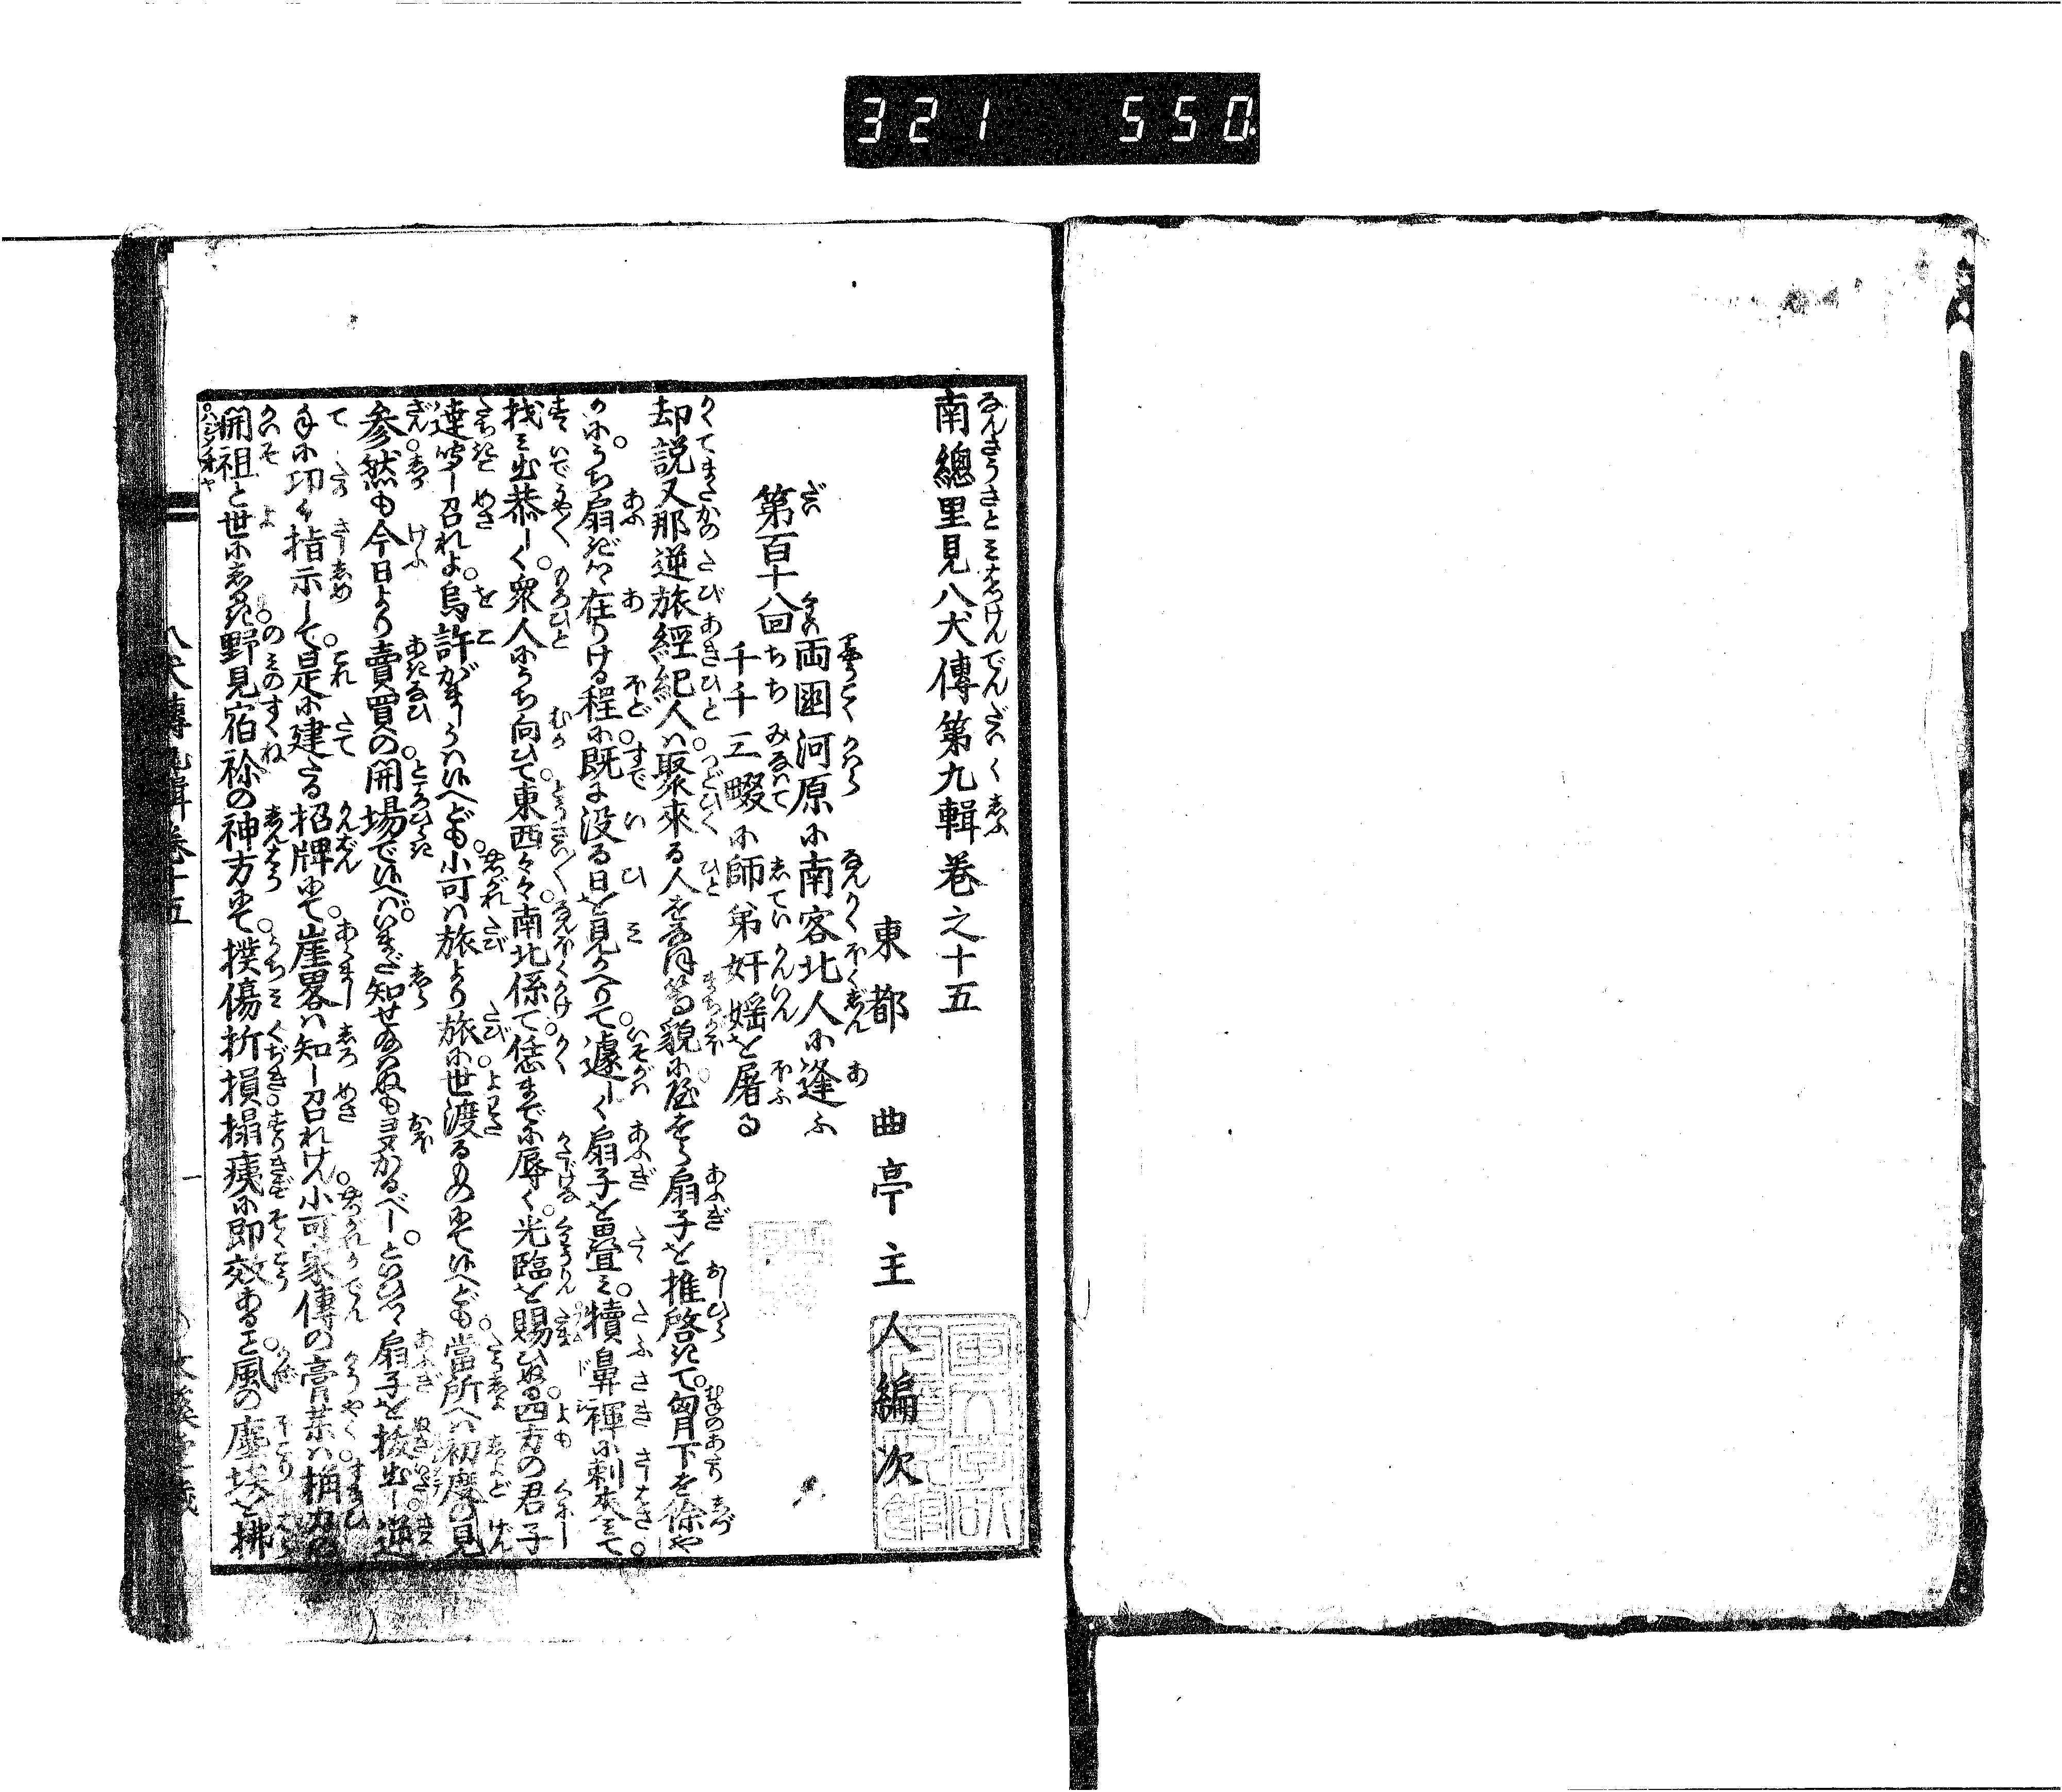 321 550.
南總里見八犬傳第九輯巻之十五
東都 曲亭主人編次
第百十八回
両国河原に南客北人に逢ふ
千千三畷に師弟奸婬を屠る
却説又那逆旅經紀人ハ聚來る人を
貌に
扇子を推啓きて匈月下を徐や
かにうち扇ぎて在りける程に既に没る日を見かへりて遽しく扇子を畳み犢鼻褌に刺夾みて
找み出恭しく衆人にうち向ひて東西々々南北係て恁まで辱く光臨を賜ひぬる四方の君子
達聞し召れよ烏許がましうハ候へども小可ハ旅より旅に世渡るものにて候へども當所へハ初度の見
参然も今日より賣買の開場で候へバいまだ知せ給ハぬも多かるべしといひつゝ扇子を抜出し逆
手に功く指示して是に建たる招牌にて崖畧ハ知し召れけん小可家傳の膏薬ハ相撲の
開祖と世にしるき野見宿祢の神方にて撲傷折損搨痍に即效あること風の塵埃を拂
八犬傳九輯巻十五
一